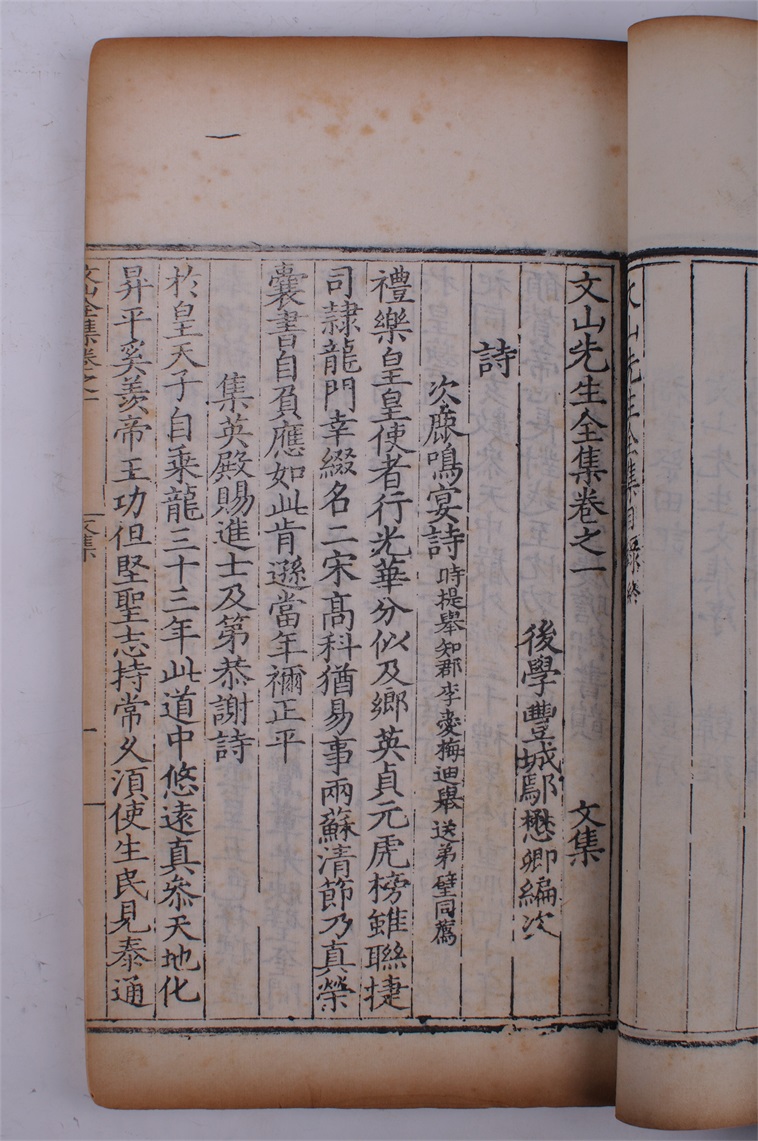 文山先生全集目錄終
文山先生全集卷之一 文集
後學豐城鄢懋卿編次
詩
次鹿鳴宴詩 時提舉知郡李愛梅迪舉送弟璧同薦
禮樂皇皇使者行光華分似及鄉英貞元虎榜雖聯捷
司隸龍門幸綴名二宋高科猶易事兩蘇清節乃真榮
囊書自負應如此肯遜當年禰正平
集英殿賜進士及第恭謝詩
於皇天子自乘龍三十三年此道中悠遠真參天地化
昇平奚羨帝王功但堅聖志持常久須使生民見泰通
文山全集卷之一 文集 一
一